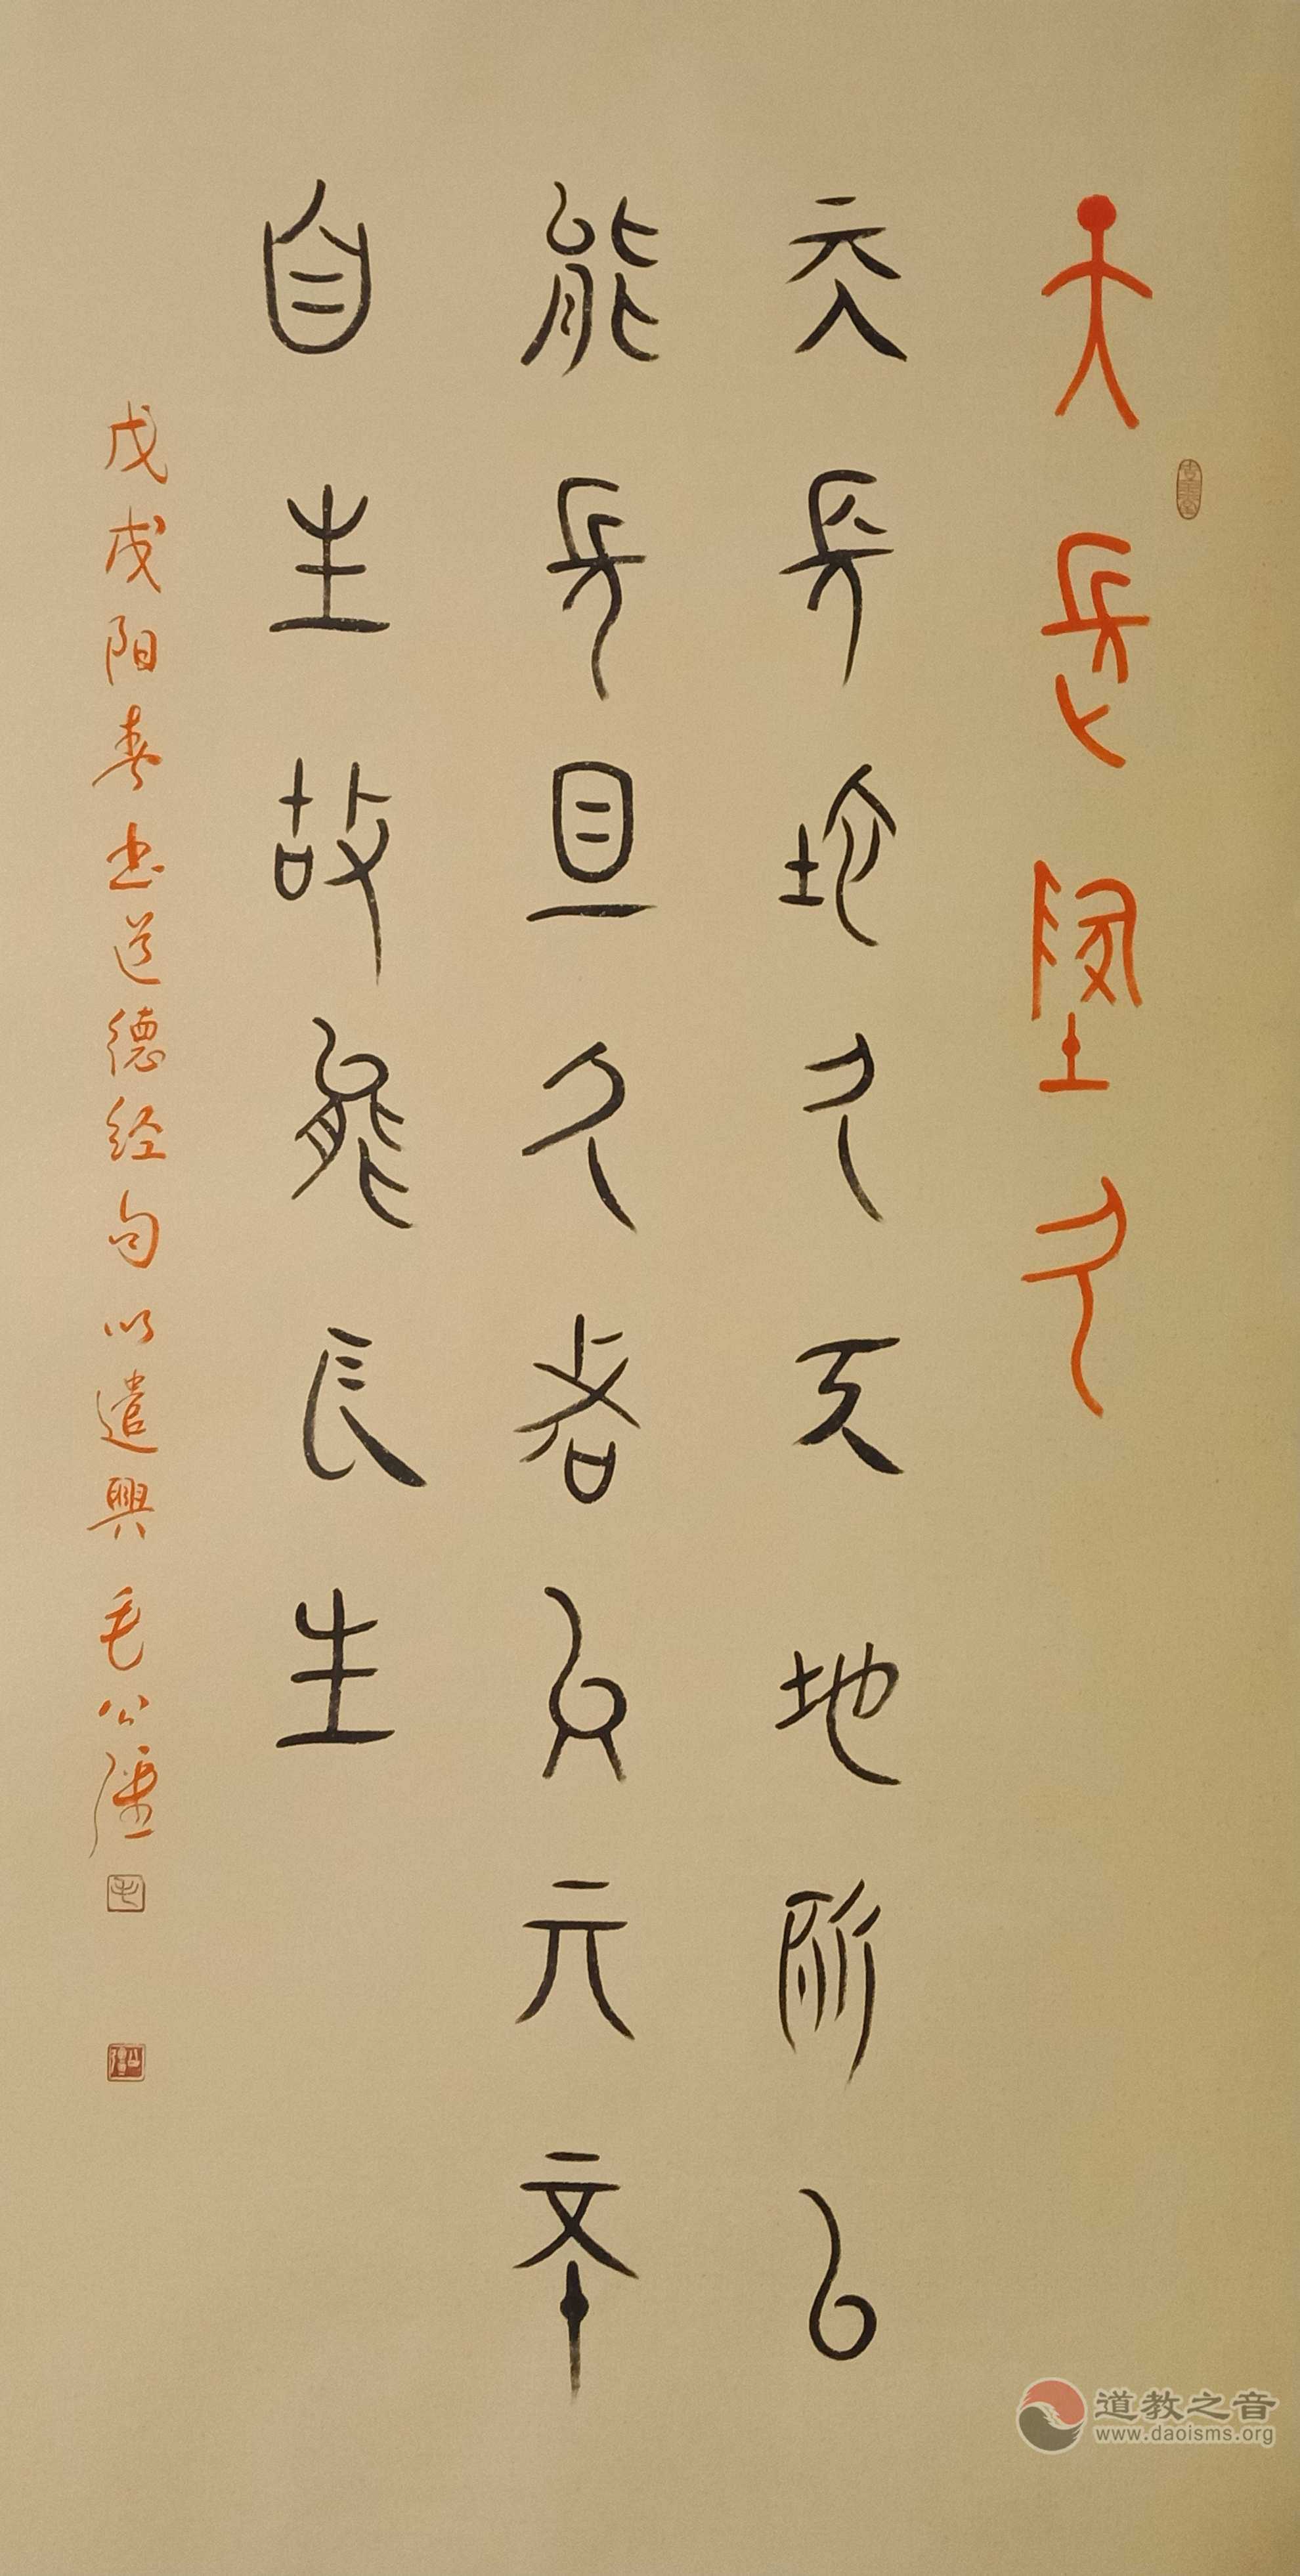 天长地久
天长地久天地所以
能长且久者以其不
自生故能长生
戊戌阳春书道德经句以遣興毛公强
道教之音
www.daoisms.org